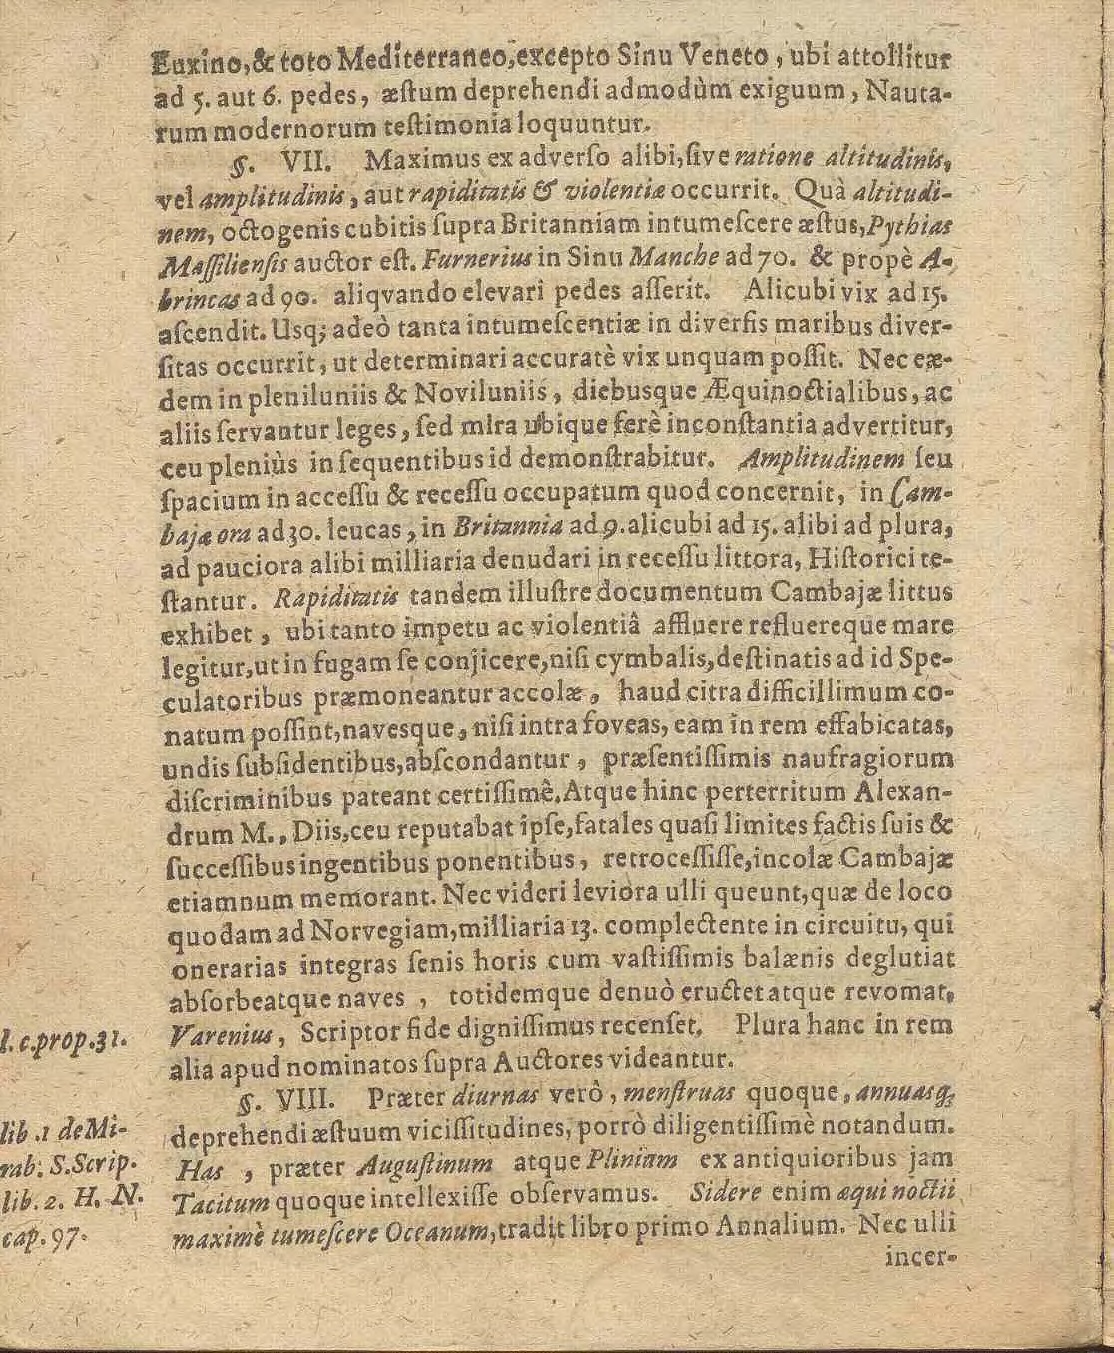 Euxino, & toto Mediterraneo, excepto Sinu Veneto, ubi attollitur
ad 5. aut 6. pedes, æstum deprehendi admodùm exiguum, Nauta-
rum modernorum testimonia loquuntur.
§. VII. Maximus ex adverso alibi, sive ratione altitudinis,
vel amplitudinis, aut rapiditatis & violentiæ occurrit. Quà altitudi-
nem, octogenis cubitis supra Britanniam intumescere æstus, Pythias
Massiliensis auctor est. Furnerius in Sinu Manche ad 70. & propè A-
brincas ad 90. aliqvando elevari pedes asserit. Alicubi vix ad 15.
ascendit. Usq; adeò tanta intumescentiæ in diversis maribus diver-
sitas occurrit, ut determinari accuratè vix unquam possit. Nec eæ-
dem in pleniluniis & Noviluniis, diebusque Æquinoctialibus, ac
aliis servantur leges, sed mira ubique ferè inconstantia advertitur,
ceu pleniùs in sequentibus id demonstrabitur. Amplitudinem seu
spacium in accessu & recessu occupatum quod concernit, in Cam-
bajæ ora ad 30. leucas, in Britannia ad 9. alicubi ad 15. alibi ad plura,
ad pauciora alibi milliaria denudari in recessu littora, Historici te-
stantur. Rapiditatis tandem illustre documentum Cambajæ littus
exhibet, ubi tanto impetu ac violentiâ affluere refluereque mare
legitur, ut in fugam se conjicere, nisi cymbalis, destinatis ad id Spe-
culatoribus præmoneantur accolæ, haud citra difficillimum co-
natum possint, navesque, nisi intra foveas, eam in rem effabicatas,
undis subsidentibus, abscondantur, præsentissimis naufragiorum
discriminibus pateant certissimè. Atque hinc perterritum Alexan-
drum M., Diis, ceu reputabat ipse, fatales quasi limites factis suis &
successibus ingentibus ponentibus, retrocessisse, incolæ Cambajæ
etiamnum memorant. Nec videri leviora ulli queunt, quæ de loco
quodam ad Norvegiam, milliaria 13. complectente in circuitu, qui
onerarias integras senis horis cum vastissimis balænis deglutiat
absorbeatque naves, totidemque denuò eructet atque revomat,
l. c. prop. 31. Varenius, Scriptor fide dignissimus recenset. Plura hanc in rem
alia apud nominatos supra Auctores videantur.
§. VIII. Præter diurnas verò, menstruas quoque, annuasq;
lib. 1 de Mi- deprehendi æstuum vicissitudines, porrò diligentissimè notandum.
rab. S. Scrip. Has, præter Augustinum atque Plinium ex antiquioribus jam
lib. 2. H. N. Tacitum quoque intellexisse observamus. Sidere enim æquinoctii
cap. 97. maximè tumescere Oceanum, tradit libro primo Annalium. Nec ulli
incer-